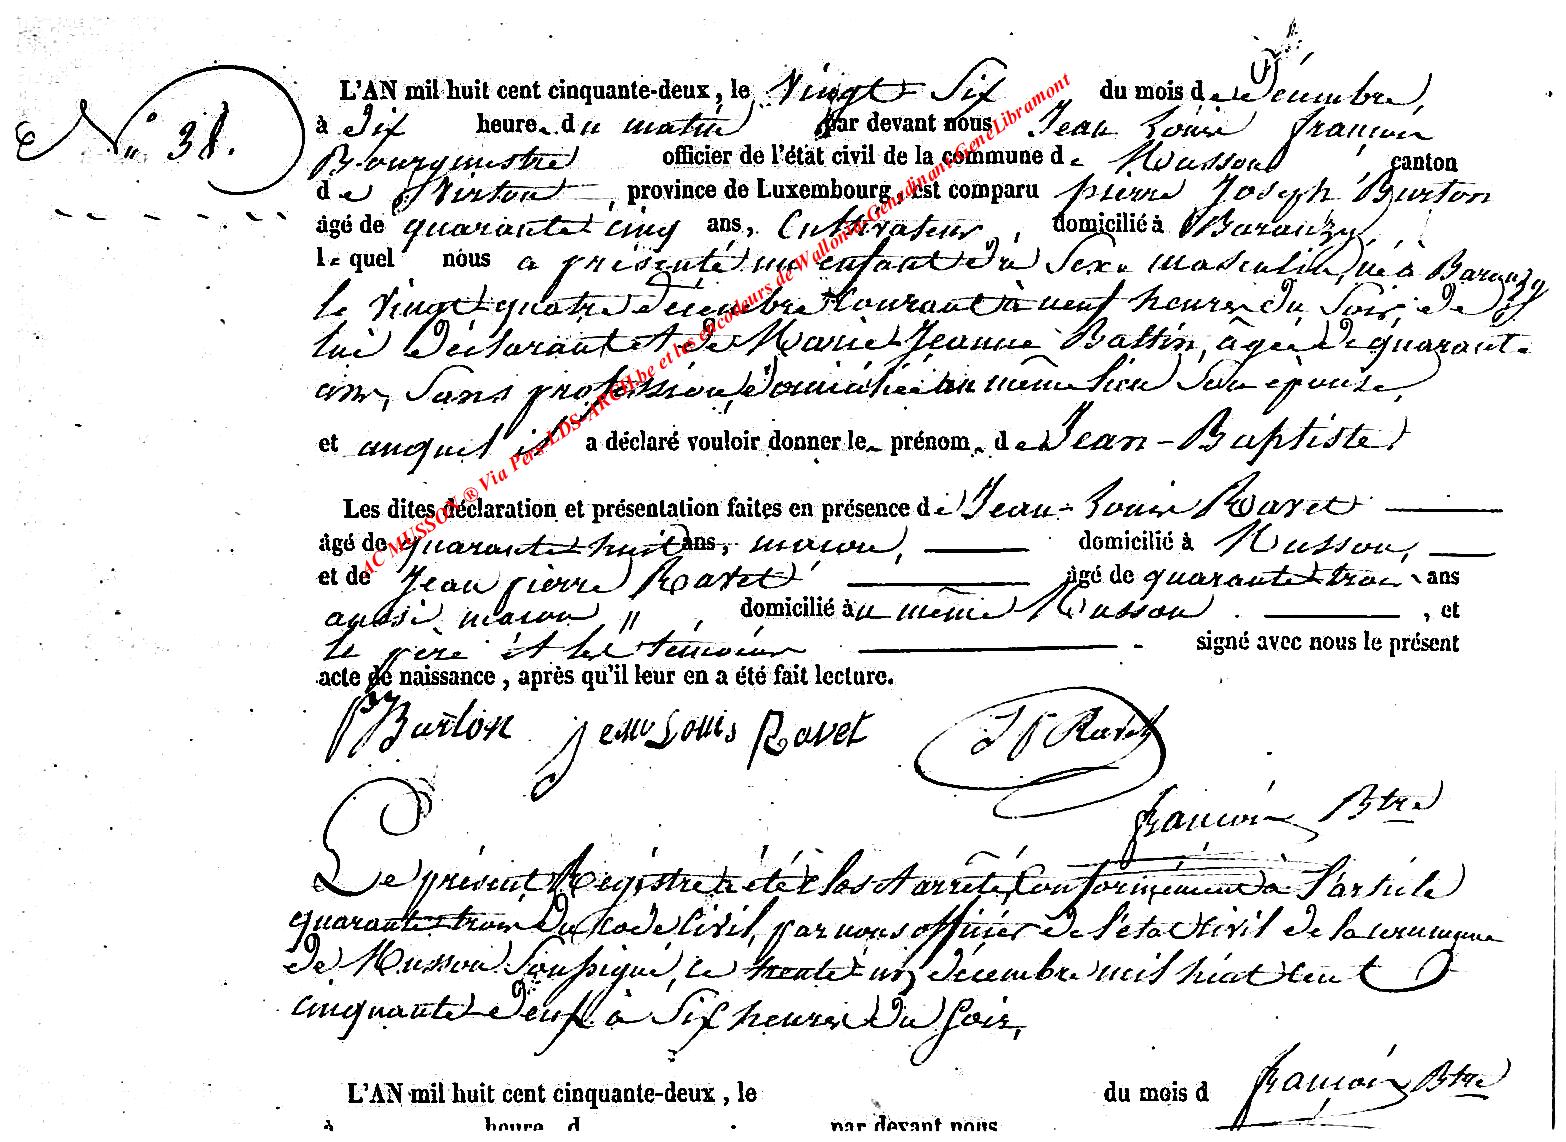 N° 38.
L'AN mil huit cent cinquante-deux, le vingt Six du mois de décembre,
à dix heure du matin par devant nous Jean Louis françois
Bourgmestre officier de l'état civil de la commune de Musson, canton
de Virton, province de Luxembourg, est comparu pierre Joseph Burton
âgé de quarante cinq ans, Cultivateur, domicilié à Baranzy,
lequel nous a présenté un enfant du Sexe masculin, né à Baranzy
le vingt quatre décembre courant à neuf heures du Soir, de
lui déclarant et de Marie Jeanne Battin, âgée de quarante
ans, Sans profession, domiciliée au même lieu Son épouse,
et auquel il a déclaré vouloir donner le prénom de Jean-Baptiste
Les dites déclaration et présentation faites en présence de Jean-Louis Ravet
âgé de quarante huit ans, maçon, domicilié à Musson,
et de Jean pierre Ravet âgé de quarante trois ans
aussi maçon " domicilié au même Musson, et
le père et les témoins signé avec nous le présent
acte de naissance, après qu'il leur en a été fait lecture.
PJ Burton Jean Louis Ravet J P Ravet
françois Btre
Le présent Registre a été clos et arrêté, Conformément à l'article
quarante trois du code Civil, par nous officier de l'état Civil de la commune
de Musson Soussigné, le trente un décembre mil huit cent
cinquante deux à Six heures du Soir,
françois Btre
L'AN mil huit cent cinquante-deux, le du mois d
à heure d par devant nous
AC MUSSON ® Via Pers LDS-ARCH.be et les encodeurs de Wallonia-Genedinant-GeneLibramont